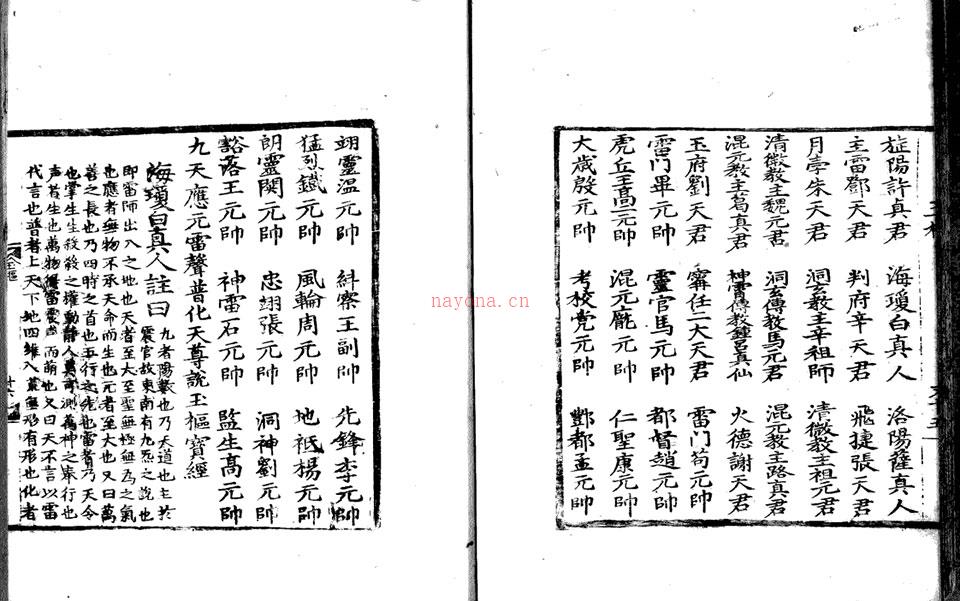 旌陽許真君 海瓊白真人 洛陽薩真人
主雷鄧天君 判府辛天君 飛捷張天君
月孛朱天君 洞玄教主辛祖師 清微教主祖元君
清微教主魏元君 洞玄傳教馬元君 混元教主路真君
混元教主葛真君 神霄傳教鍾呂真仙 火德謝天君
玉府劉天君 甯任二大天君 雷門苟元帥
雷門畢元帥 靈官馬元帥 都督趙元帥
虎丘王高二元帥 混元龐元帥 仁聖康元帥
大歲殷元帥 考校党元帥 酆都孟元帥
翊靈溫元帥 糾察王副帥 先鋒李元帥
猛烈鐵元帥 風輪周元帥 地祇楊元帥
朗靈関元帥 忠翊張元帥 洞神劉元帥
豁落王元帥 神雷石元帥 監生高元帥
九天應元雷聲普化天尊說玉樞寶經
海瓊白真人註曰 九者陽數也乃天道也主於
震宮故東南有九炁之說也
即雷師出入之地也天者至大至聖無極無為之氣
也應者無物不承天命而生也元者至大也又曰萬
善之長也乃四時之首也五行之先也雷者乃天令
也掌生生殺殺之權動靜人莫可測萬神之奉行也
声者生也萬物得雷震声而萌也又曰天不言以雷
代言也普者上天下地四維八荒無形有形也化者
nayona.cn